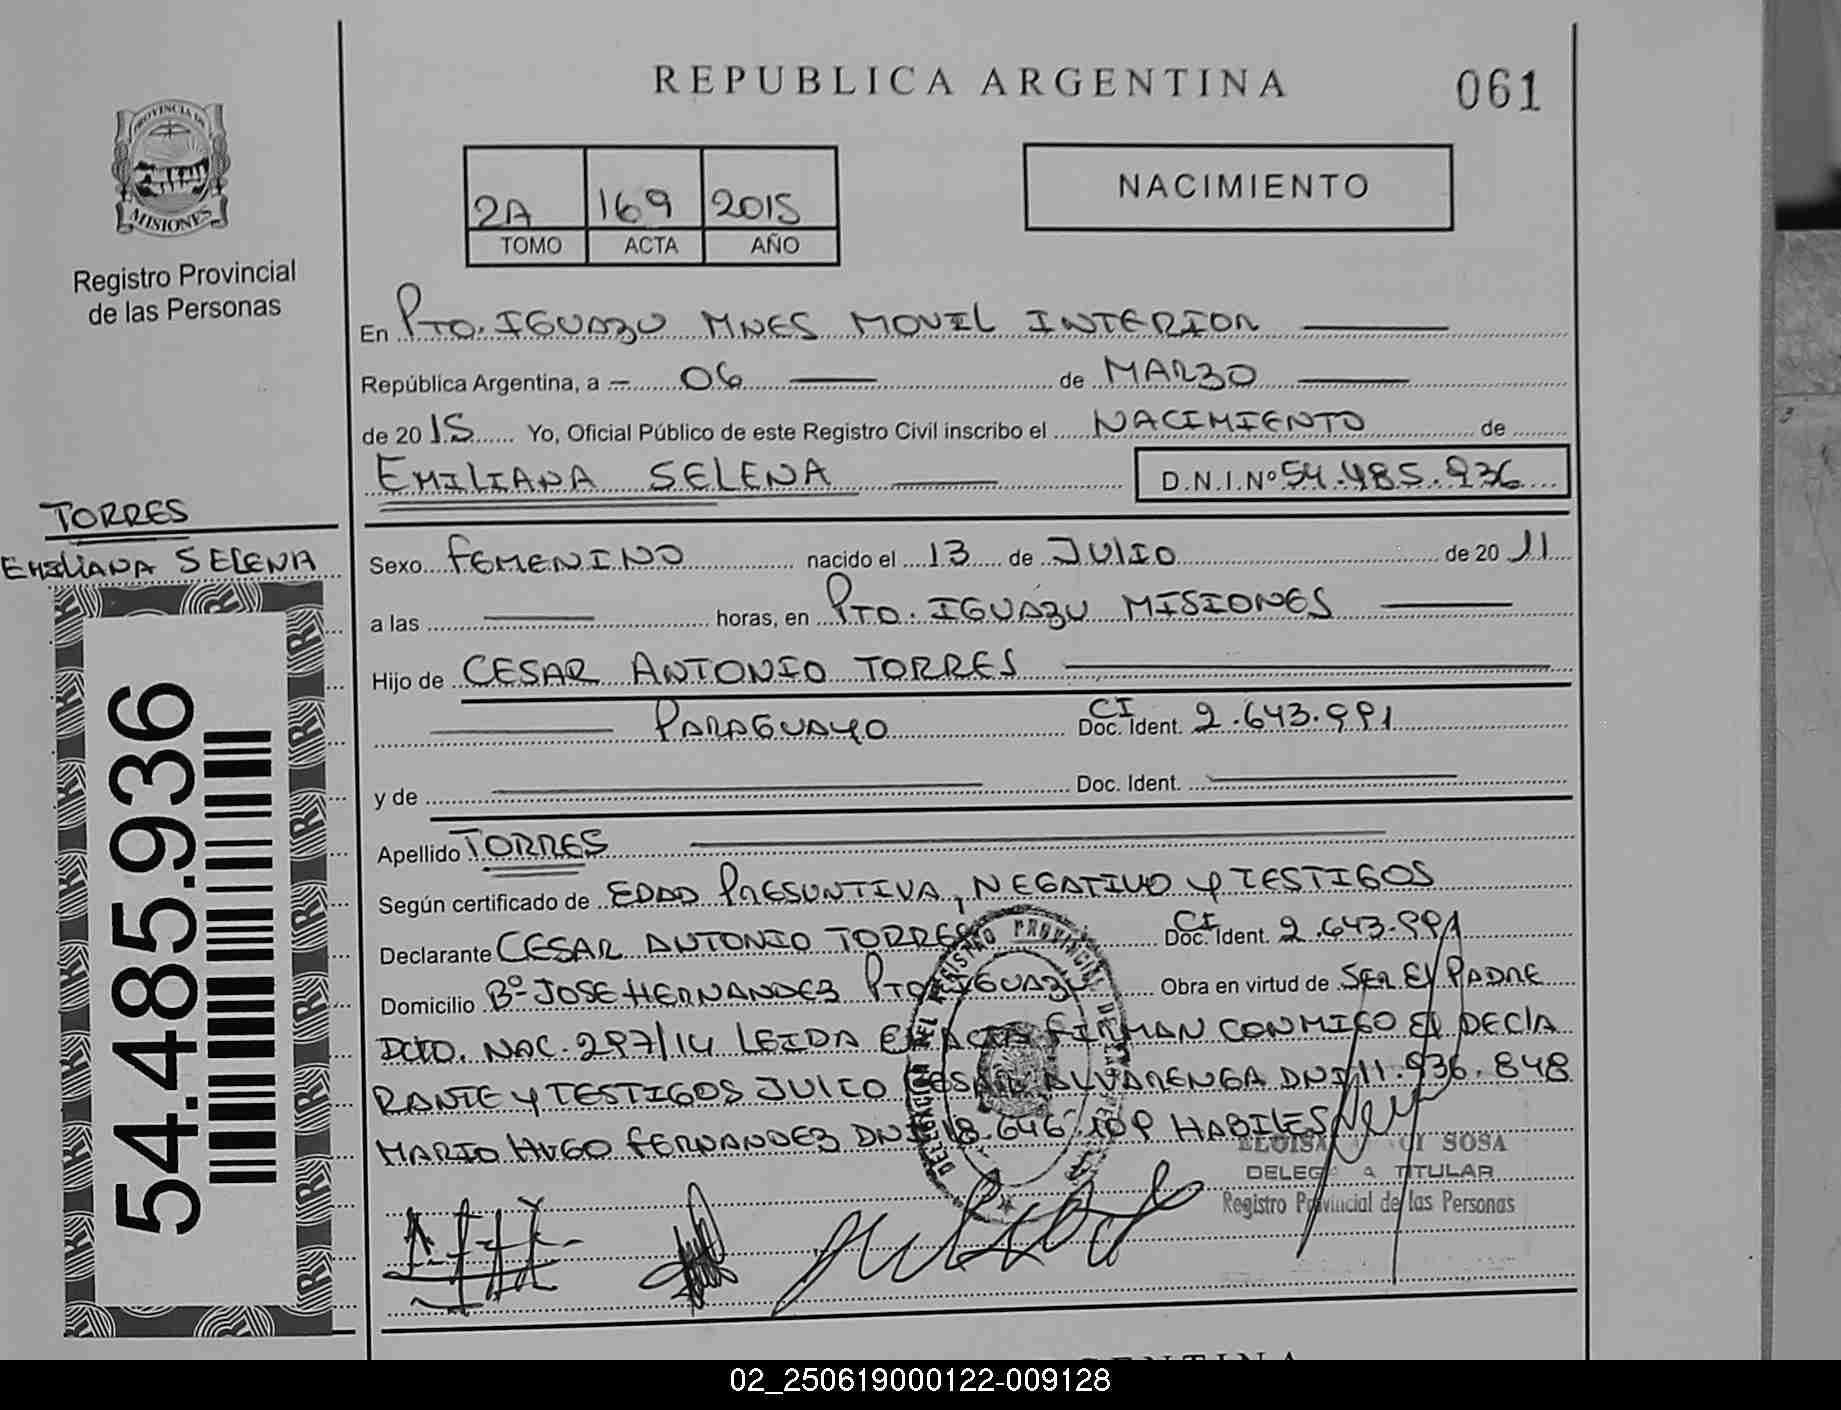 REPUBLICA ARGENTINA
061
PROVINCIA DE
MISIONES
Registro Provincial
de las Personas
2A 169 2015
TOMO ACTA AÑO
NACIMIENTO
En Pto. IGUAZU MNES MOVIL INTERIOR
República Argentina, a 06 de MARZO
de 2015 Yo, Oficial Público de este Registro Civil inscribo el NACIMIENTO de
EMILIANA SELENA D.N.I.Nº 54.485.936
TORRES
EMILIANA SELENA
Sexo FEMENINO nacido el 13 de JULIO de 2011
a las horas, en PTO. IGUAZU MISIONES
Hijo de CESAR ANTONIO TORRES
PARAGUAYO CI Doc. Ident. 2.643.991
y de Doc. Ident.
Apellido TORRES
Según certificado de EDAD PRESUNTIVA, NEGATIVO y TESTIGOS
Declarante CESAR ANTONIO TORRES CI Doc. Ident. 2.643.991
Domicilio Bº JOSE HERNANDEZ PTO IGUAZU Obra en virtud de SER EL PADRE
DCTO. NAC. 297/14 LEIDA EL ACTA FIRMAN CONMIGO EL DECLA
RANTE y TESTIGOS JULIO CESAR ALVARENGA DNI 11.936.848
MARIO HUGO FERNANDEZ DNI 18.646.109 HABILES
SOSA
TITULAR
Registro Provincial de las Personas
54.485.936
02_250619000122-009128